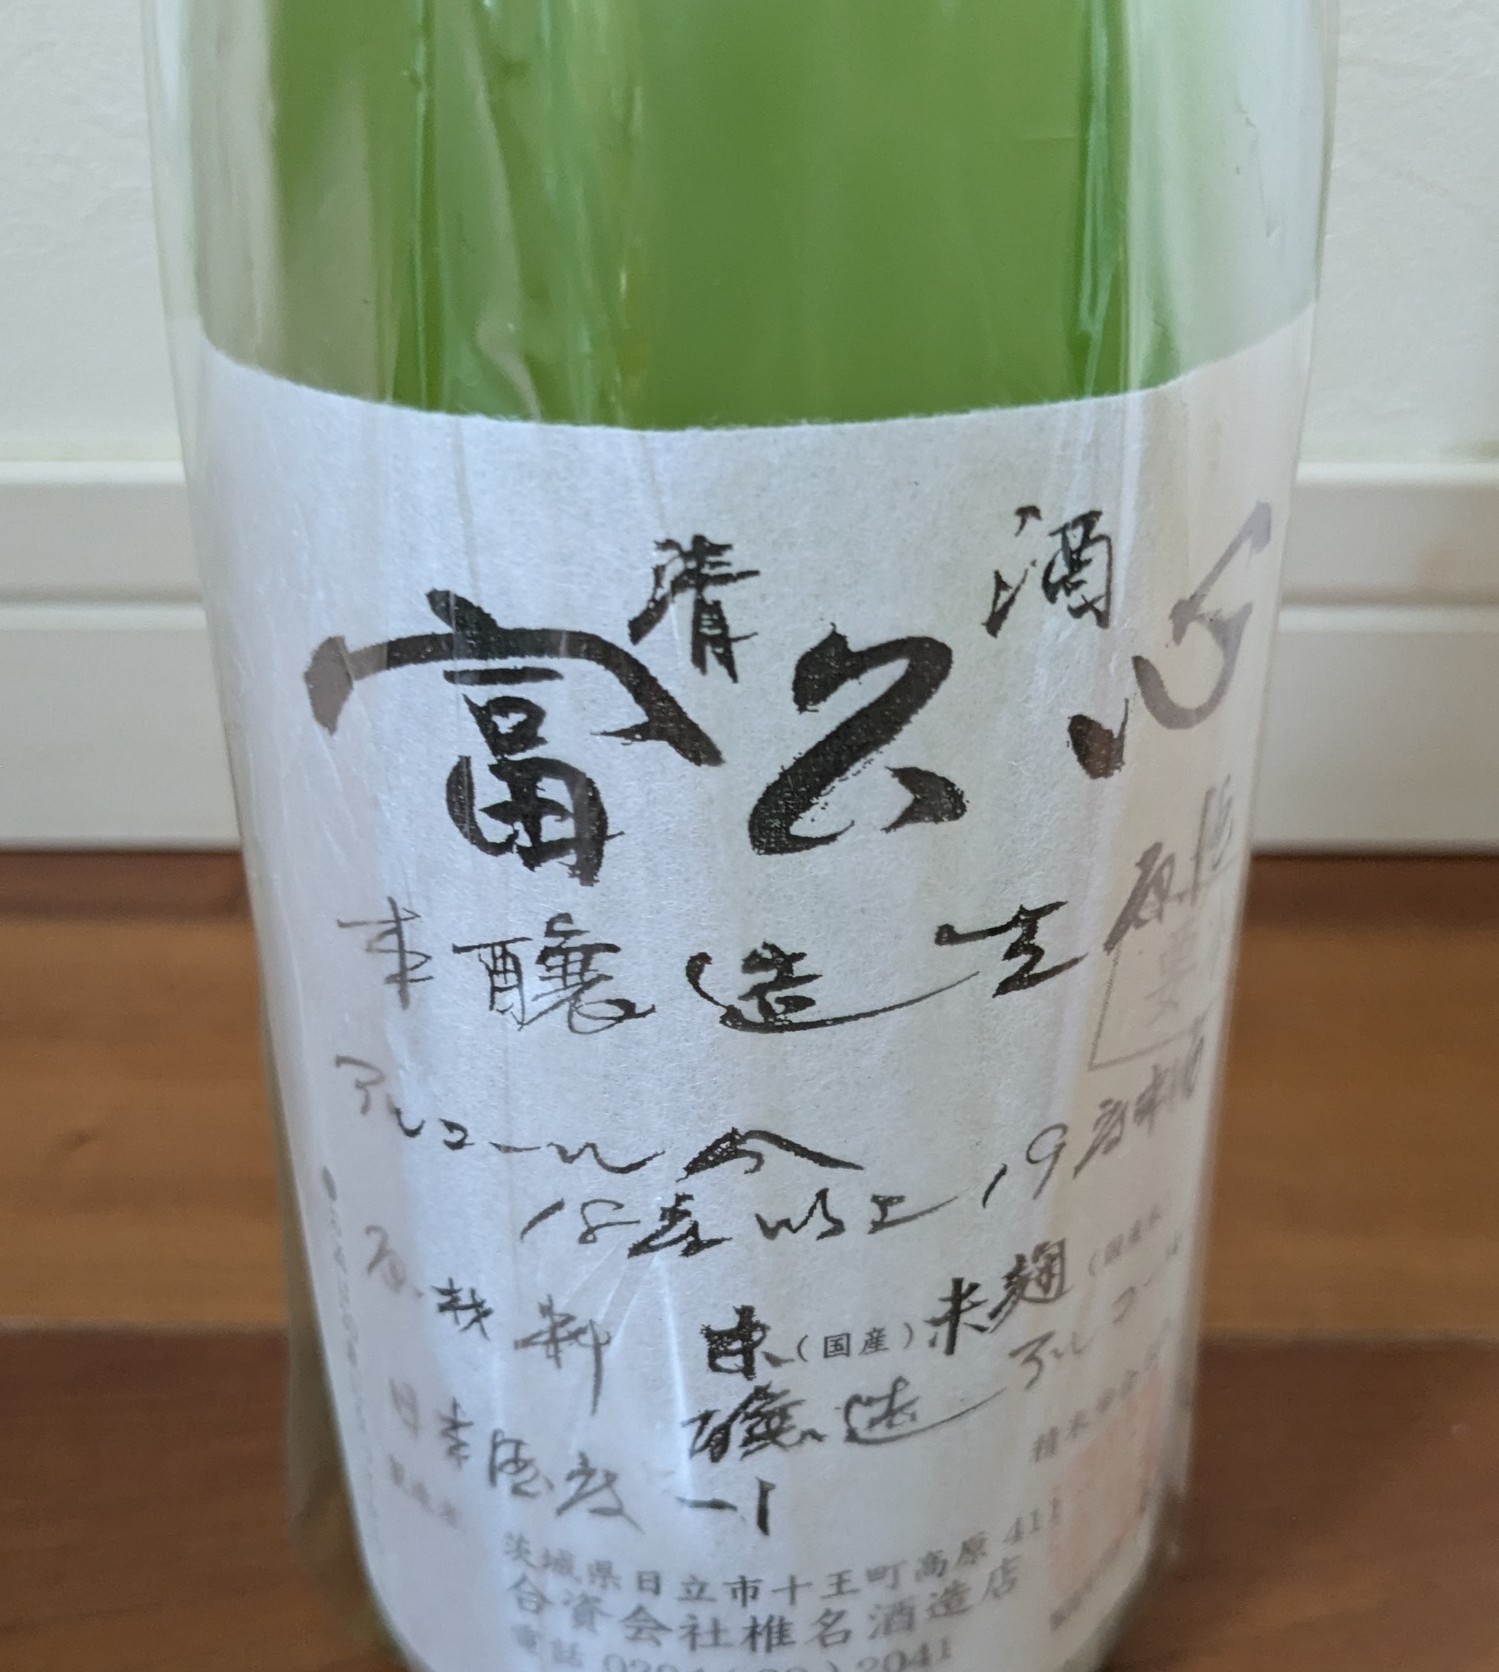 清酒
富久心
本醸造生原酒
アルコール分
18度以上19度未満
原材料 米(国産)米麹(国産米)
醸造アルコール
日本酒度 -1
精米歩合
茨城県日立市十王町高原411
合資会社椎名酒造店
電話 2041